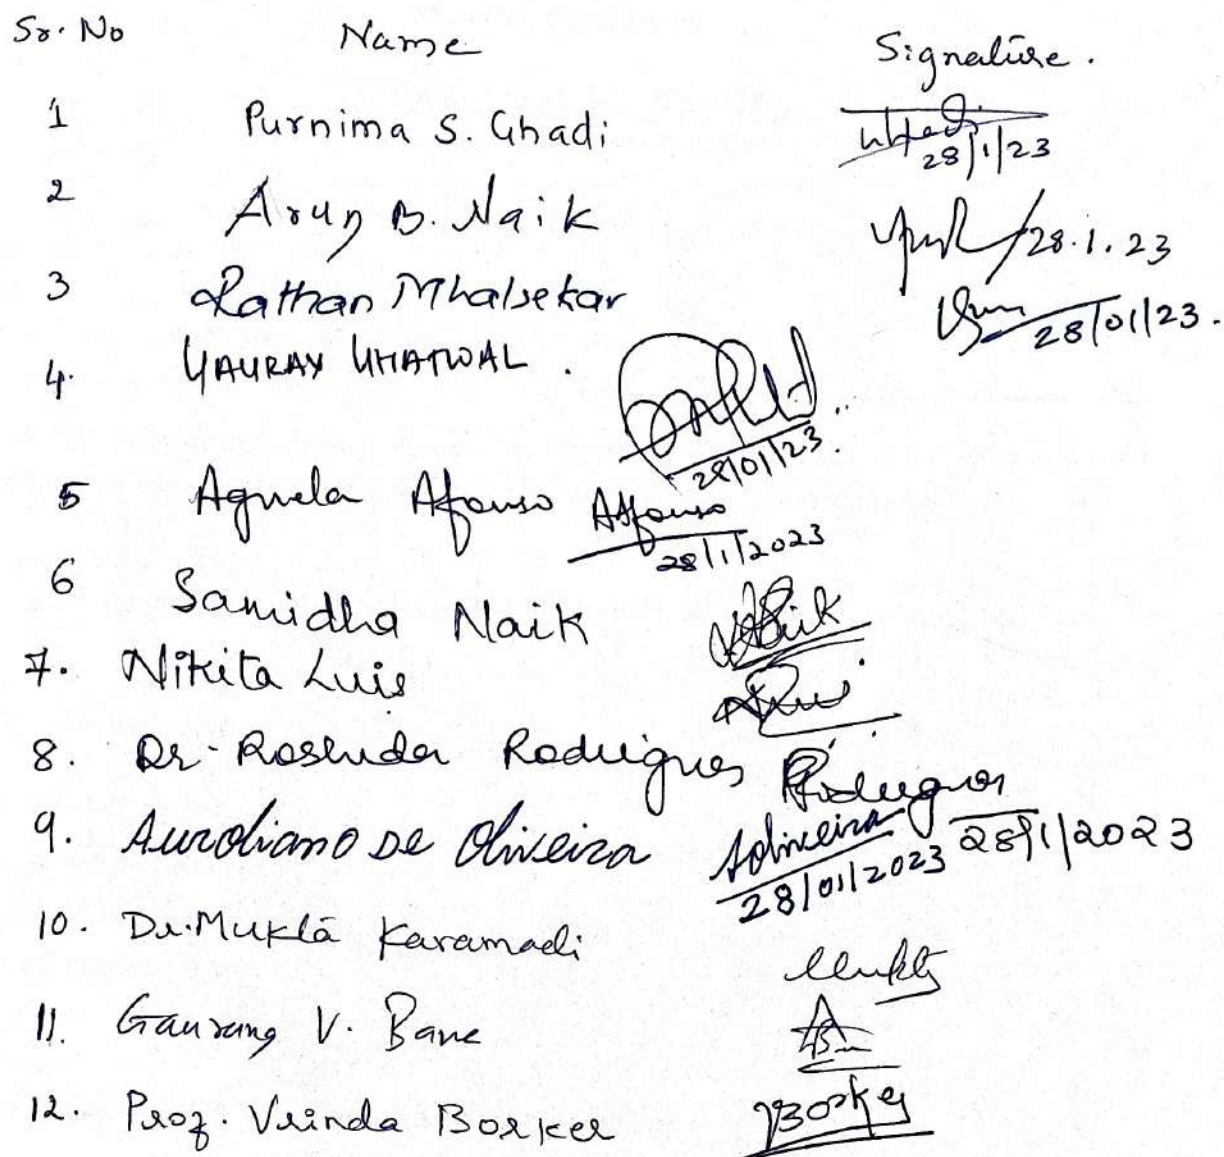 Sr. No Name Signature.
1 Purnima S. Ghadi 28/1/23
2 Arun B. Naik 28.1.23
3 Rathan Mhalsekar 28/01/23.
4. GAURAV GHATWAL. 28/01/23.
5 Agnela Afonso Afonso 28/1/2023
6 Samidha Naik Naik
7. Nikita Luis
8. Dr. Roshida Rodrigues Rodrigues 28/1/2023
9. Aureliano De Oliveira Aoliveira 28/01/2023
10. Dr. Mukta Karamadi Mukta
11. Gaurang V. Bane
12. Prof. Vrinda Borker VBorker